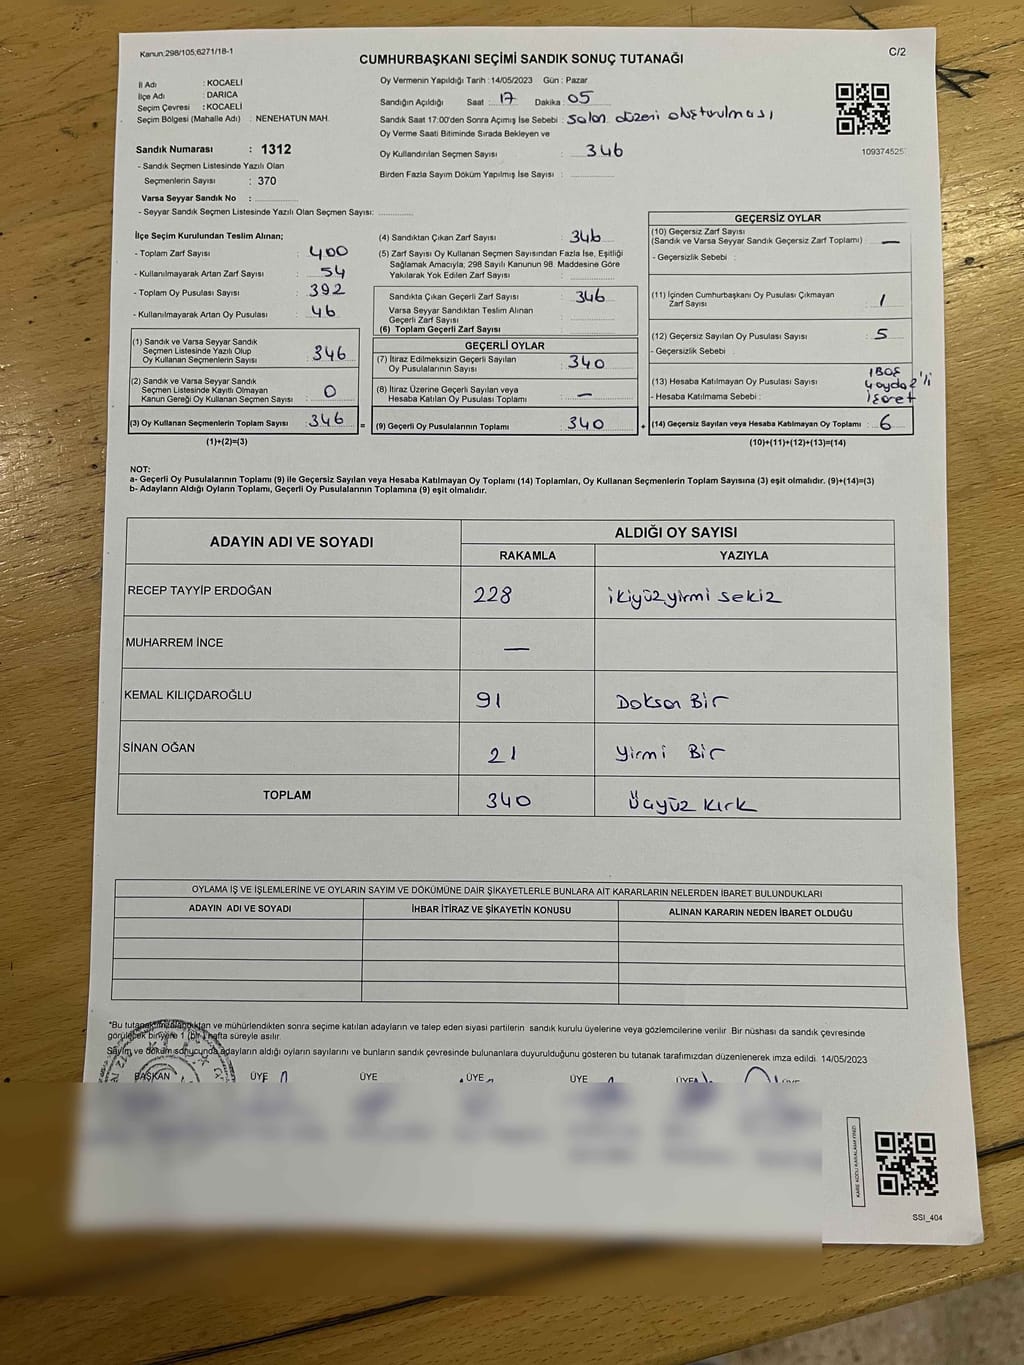 Kanun:298/105,6271/18-1
C/2
CUMHURBAŞKANI SEÇİMİ SANDIK SONUÇ TUTANAĞI
İl Adı : KOCAELİ
İlçe Adı : DARICA
Seçim Çevresi : KOCAELİ
Seçim Bölgesi (Mahalle Adı) : NENEHATUN MAH.
Sandık Numarası : 1312
- Sandık Seçmen Listesinde Yazılı Olan
Seçmenlerin Sayısı : 370
Varsa Seyyar Sandık No :
- Seyyar Sandık Seçmen Listesinde Yazılı Olan Seçmen Sayısı:
Oy Vermenin Yapıldığı Tarih : 14/05/2023 Gün : Pazar
Sandığın Açıldığı Saat 17 Dakika : 05
Sandık Saat 17:00'den Sonra Açımış İse Sebebi : Salon düzeni oluşturulması
Oy Verme Saati Bitiminde Sırada Bekleyen ve
Oy Kullandırılan Seçmen Sayısı : 346
Birden Fazla Sayım Döküm Yapılmış İse Sayısı :
109374525
İlçe Seçim Kurulundan Teslim Alınan;
- Toplam Zarf Sayısı : 400
- Kullanılmayarak Artan Zarf Sayısı : 54
- Toplam Oy Pusulası Sayısı : 392
- Kullanılmayarak Artan Oy Pusulası : 46
(1) Sandık ve Varsa Seyyar Sandık
Seçmen Listesinde Yazılı Olup
Oy Kullanan Seçmenlerin Sayısı : 346
(2) Sandık ve Varsa Seyyar Sandık
Seçmen Listesinde Kayıtlı Olmayan
Kanun Gereği Oy Kullanan Seçmen Sayısı : 0
(3) Oy Kullanan Seçmenlerin Toplam Sayısı : 346 =
(1)+(2)=(3)
(4) Sandıktan Çıkan Zarf Sayısı : 346
(5) Zarf Sayısı Oy Kullanan Seçmen Sayısından Fazla İse, Eşitliği
Sağlamak Amacıyla; 298 Sayılı Kanunun 98. Maddesine Göre
Yakılarak Yok Edilen Zarf Sayısı :
Sandıkta Çıkan Geçerli Zarf Sayısı : 346
Varsa Seyyar Sandıktan Teslim Alınan
Geçerli Zarf Sayısı :
(6) Toplam Geçerli Zarf Sayısı :
GEÇERLİ OYLAR
(7) İtiraz Edilmeksizin Geçerli Sayılan
Oy Pusulalarının Sayısı : 340
(8) İtiraz Üzerine Geçerli Sayılan veya
Hesaba Katılan Oy Pusulası Toplamı : —
(9) Geçerli Oy Pusulalarının Toplamı : 340 +
GEÇERSİZ OYLAR
(10) Geçersiz Zarf Sayısı
(Sandık ve Varsa Seyyar Sandık Geçersiz Zarf Toplamı) : —
- Geçersizlik Sebebi :
(11) İçinden Cumhurbaşkanı Oy Pusulası Çıkmayan
Zarf Sayısı : 1
(12) Geçersiz Sayılan Oy Pusulası Sayısı : 5
- Geçersizlik Sebebi :
1 BOŞ
(13) Hesaba Katılmayan Oy Pusulası Sayısı : 4 oyda 2'li
- Hesaba Katılmama Sebebi : işaret
(14) Geçersiz Sayılan veya Hesaba Katılmayan Oy Toplamı : 6
(10)+(11)+(12)+(13)=(14)
NOT:
a- Geçerli Oy Pusulalarının Toplamı (9) ile Geçersiz Sayılan veya Hesaba Katılmayan Oy Toplamı (14) Toplamları, Oy Kullanan Seçmenlerin Toplam Sayısına (3) eşit olmalıdır. (9)+(14)=(3)
b- Adayların Aldığı Oyların Toplamı, Geçerli Oy Pusulalarının Toplamına (9) eşit olmalıdır.
ADAYIN ADI VE SOYADI
ALDIĞI OY SAYISI
RAKAMLA YAZIYLA
RECEP TAYYİP ERDOĞAN 228 ikiyüzyirmi sekiz
MUHARREM İNCE —
KEMAL KILIÇDAROĞLU 91 Doksan Bir
SİNAN OĞAN 21 Yirmi Bir
TOPLAM 340 Üçyüz kırk
OYLAMA İŞ VE İŞLEMLERİNE VE OYLARIN SAYIM VE DÖKÜMÜNE DAİR ŞİKAYETLERLE BUNLARA AİT KARARLARIN NELERDEN İBARET BULUNDUKLARI
ADAYIN ADI VE SOYADI İHBAR İTİRAZ VE ŞİKAYETİN KONUSU ALINAN KARARIN NEDEN İBARET OLDUĞU
*Bu tutanak imzalandıktan ve mühürlendikten sonra seçime katılan adayların ve talep eden siyasi partilerin sandık kurulu üyelerine veya gözlemcilerine verilir. Bir nüshası da sandık çevresinde
görülebilecek biryere 1 (bir) hafta süreyle asılır.
Sayım ve döküm sonucunda adayların aldığı oyların sayılarını ve bunların sandık çevresinde bulunanlara duyurulduğunu gösteren bu tutanak tarafımızdan düzenlenerek imza edildi. 14/05/2023
BAŞKAN ÜYE ÜYE ÜYE ÜYE ÜYE ÜYE
SSI_404